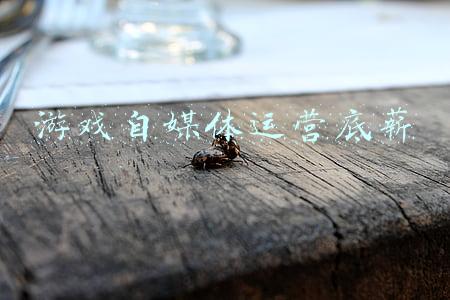 游戏自媒体运营底薪